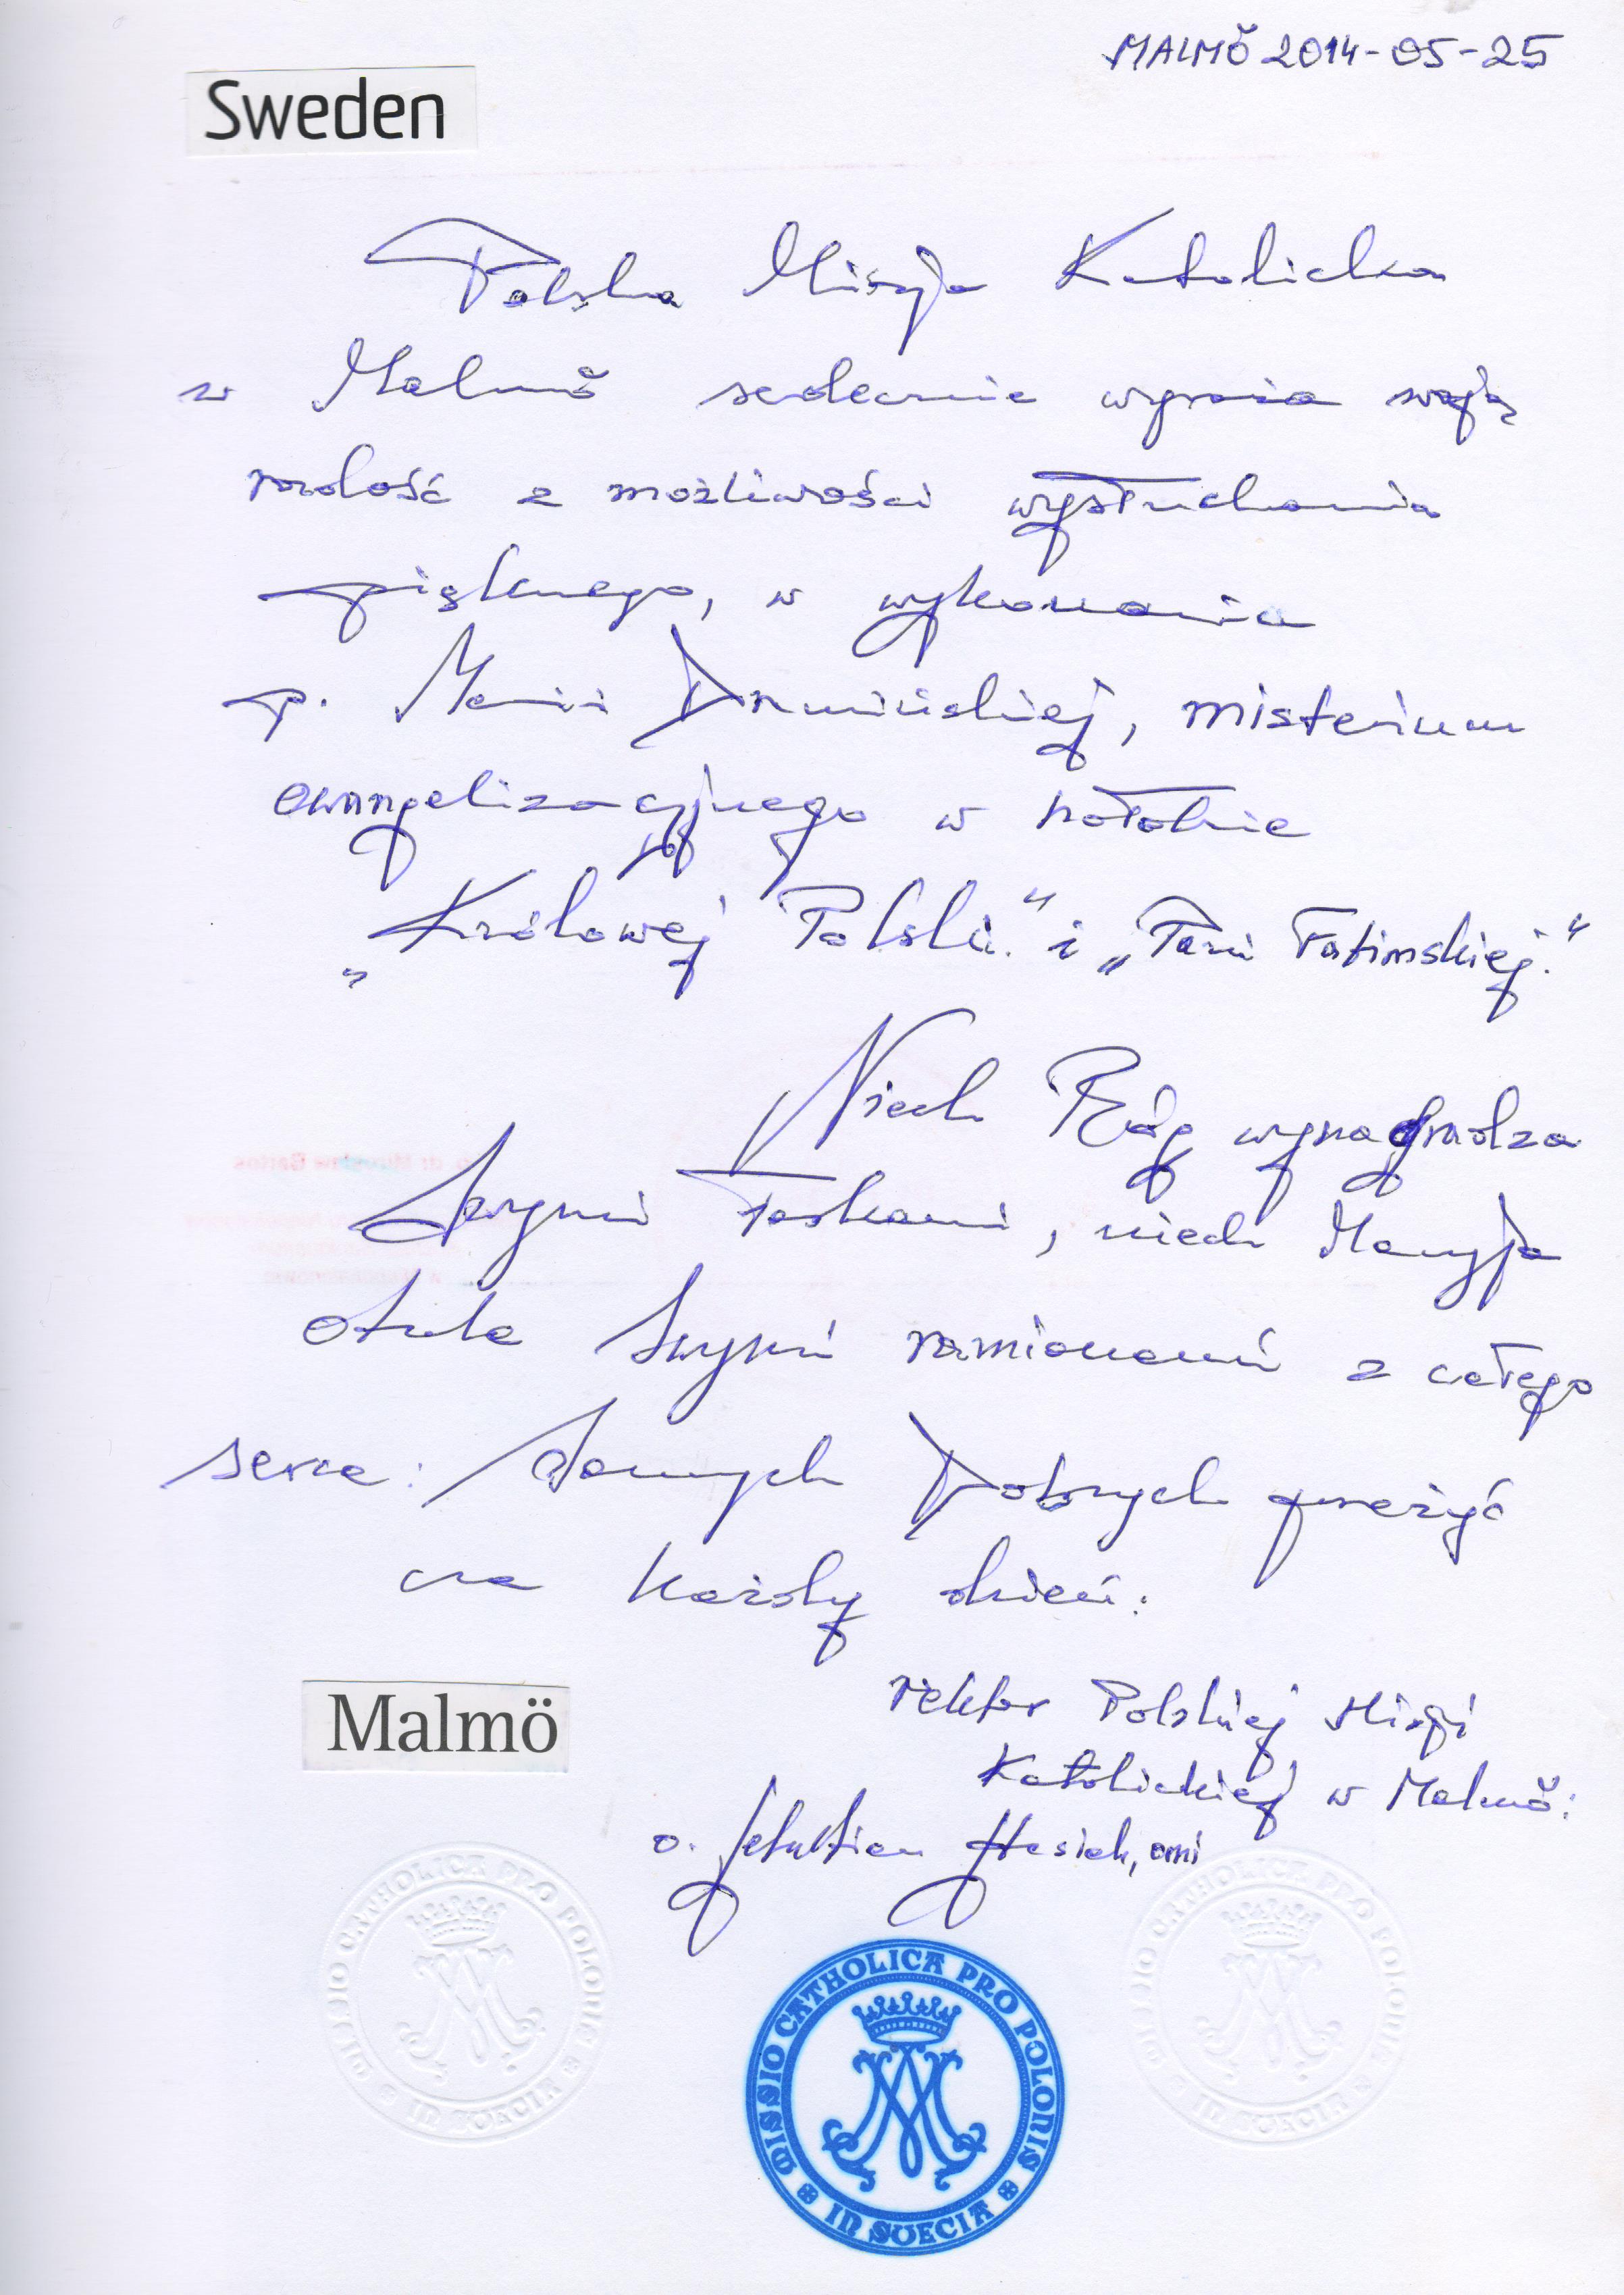 MALMÖ 2014-05-25
Sweden
Polska Misja Katolicka
w Malmö serdecznie wyraża swoją
radość z możliwości wysłuchania
pięknego, w wykonaniu
p. Marii misterium
ewangelizacyjnego w hołdzie
„Królowej Polski" i „Pani Fatimskiej."
Niech Bóg wynagradza
Swymi Łaskami, niech Maryja
otula Swymi ramionami z całego
serca: Samych Dobrych przeżyć
na każdy dzień:
Malmö
rektor Polskiej Misji
Katolickiej w Malmö:
o. omi
MISSIO CATHOLICA PRO POLONIS
IN SUECIA
MISSIO CATHOLICA PRO POLONIS
IN SUECIA
MISSIO CATHOLICA PRO POLONIS
IN SUECIA